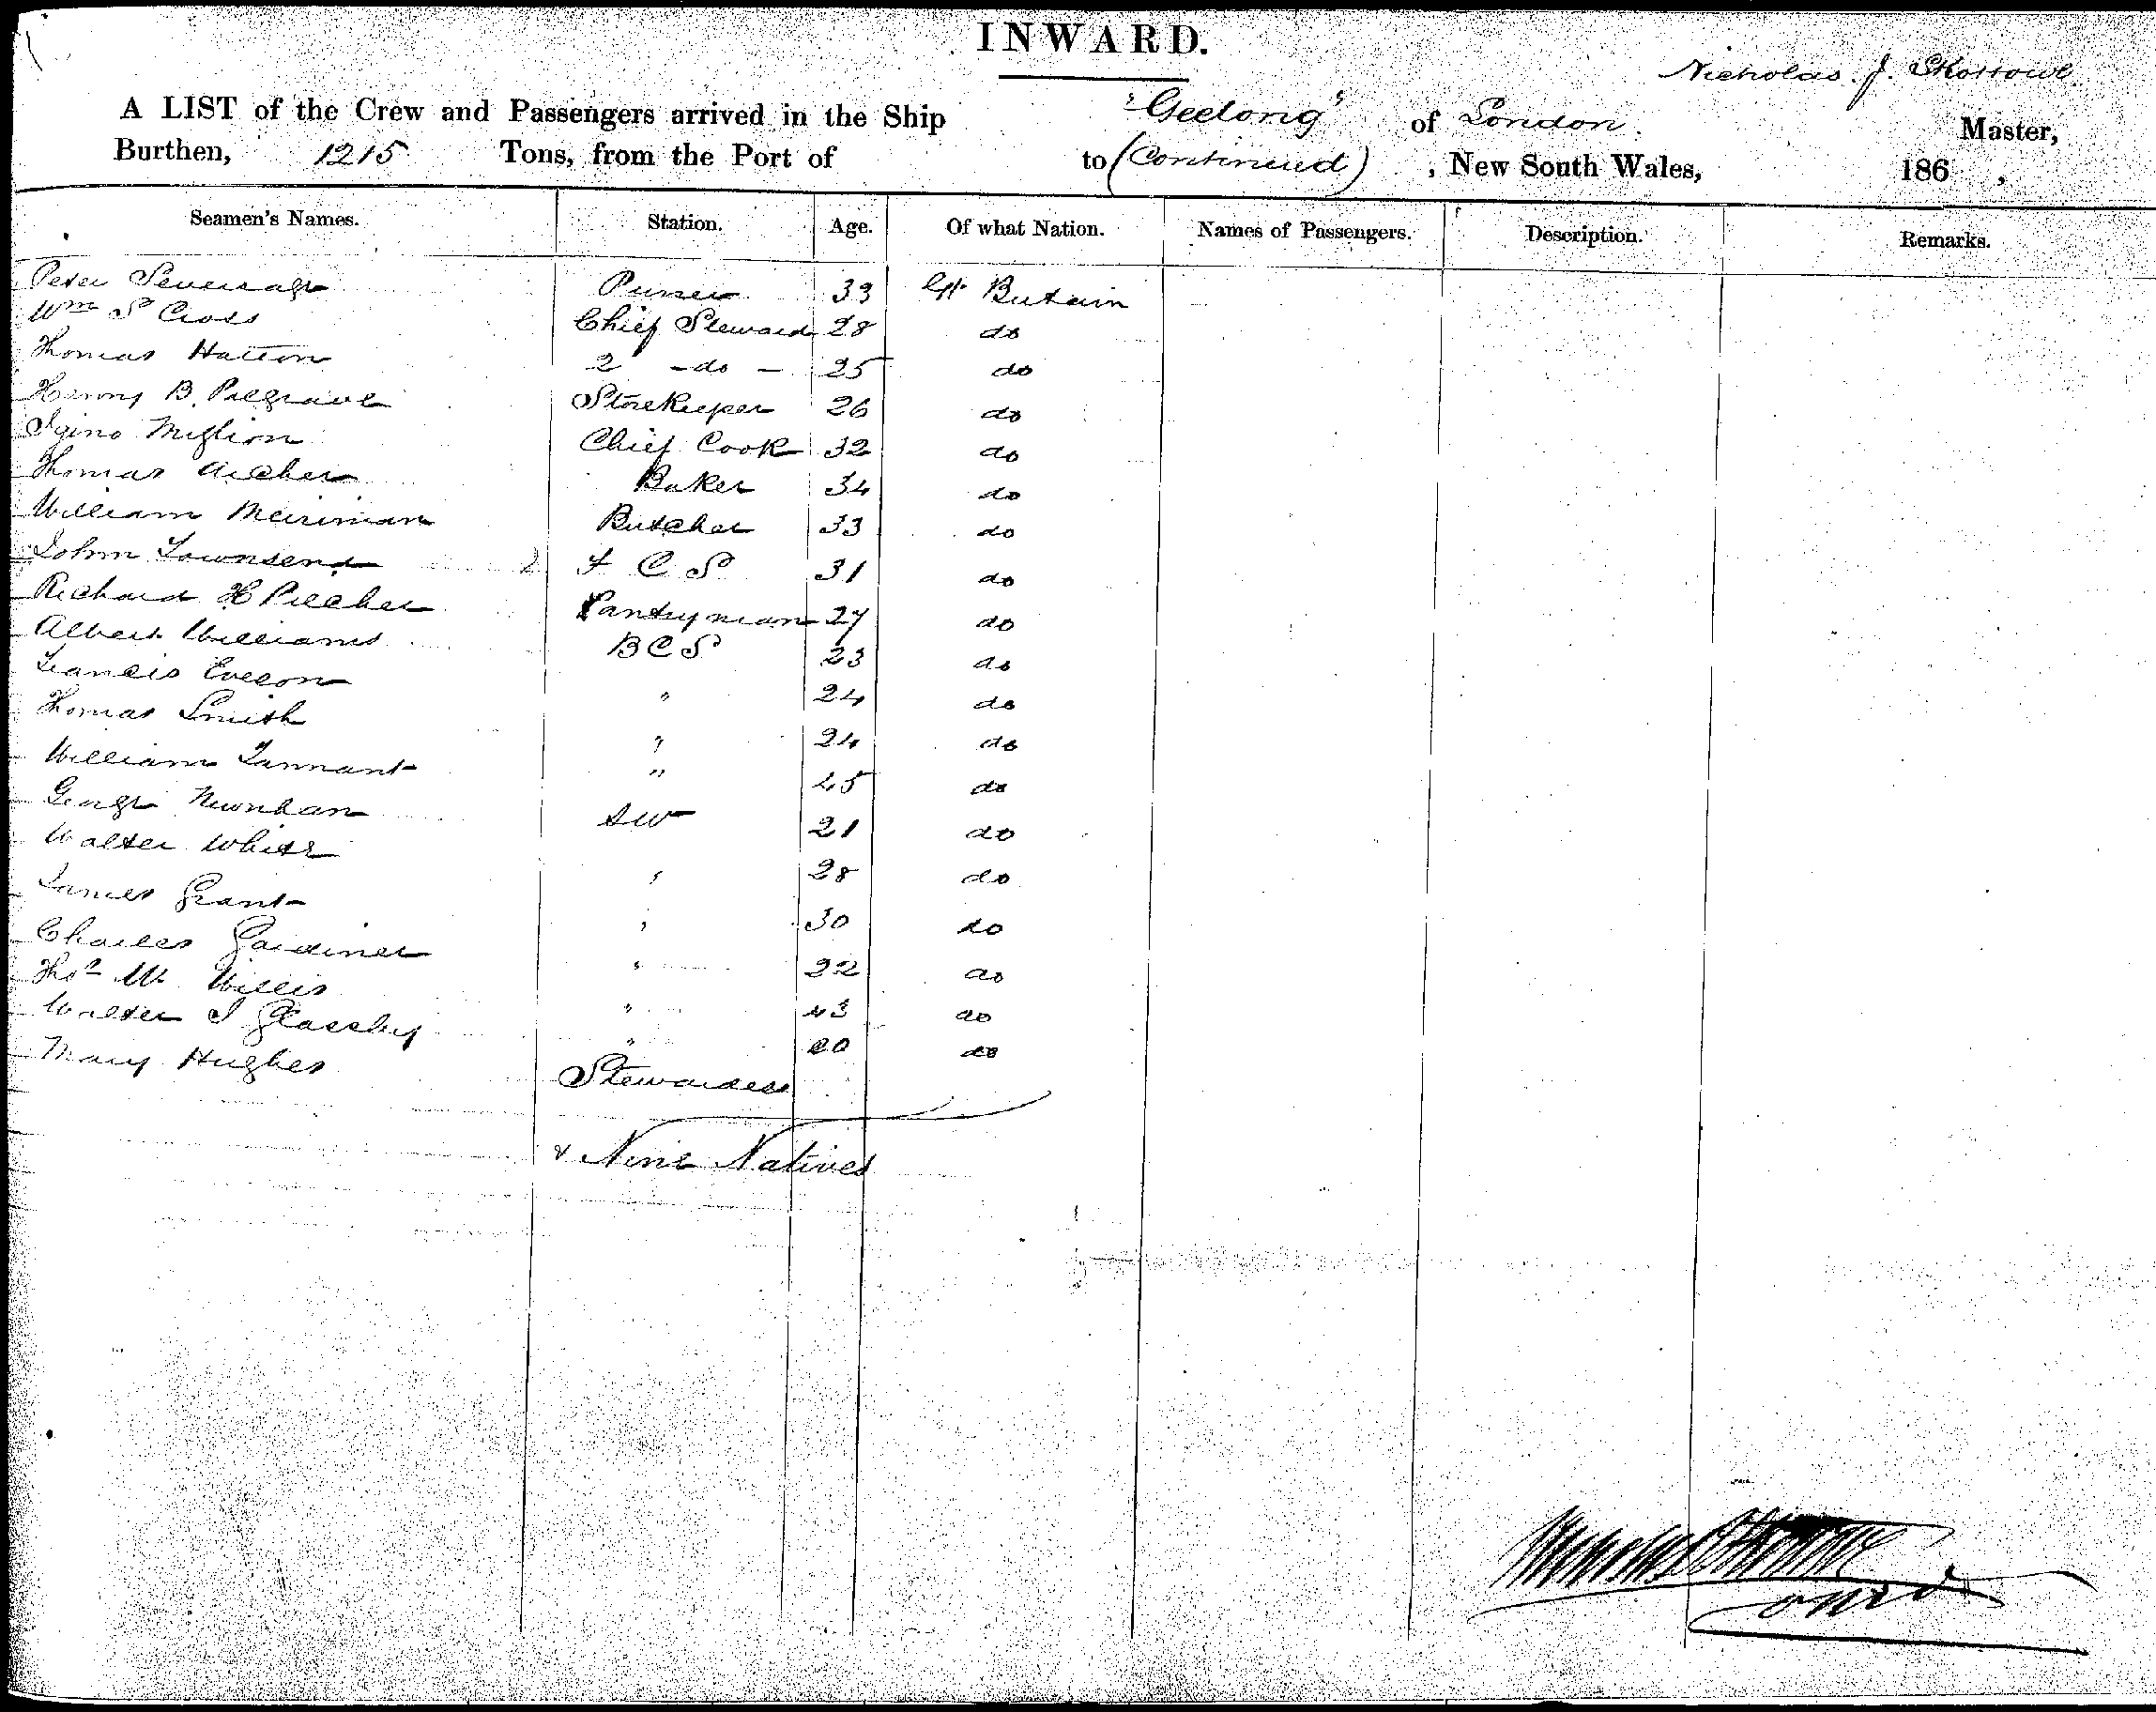 INWARD.
Nicholas. J. Skottowe
A LIST of the Crew and Passengers arrived in the Ship "Geelong" of London. Master,
Burthen, 1215 Tons, from the Port of to (Continued), New South Wales, 186 ,
Seamen's Names. Station. Age. Of what Nation. Names of Passengers. Description. Remarks.
Peter Purser 33 Gt Britain
Wm S Cross Chief Steward 28 do
Thomas Hatton 2 -do- 25 do
Henry B. Pilgrave Storekeeper 26 do
Chief Cook 32 do
Thomas Archer Baker 34 do
William Merriman Butcher 33 do
John Townsend F C S 31 do
Richard H Pilcher Pantryman 27 do
Albert Williams B C S 23 do
Francis " 24 do
Thomas Smith " 24 do
William Tannant " 45 do
George Newnham SW 21 do
Walter White " 28 do
James Grant " 30 do
Charles Gardiner " 22 do
Thos W. Willis " 43 do
Walter J Glassby " 20 do
Mary Hughes Stewardess
& Nine Natives